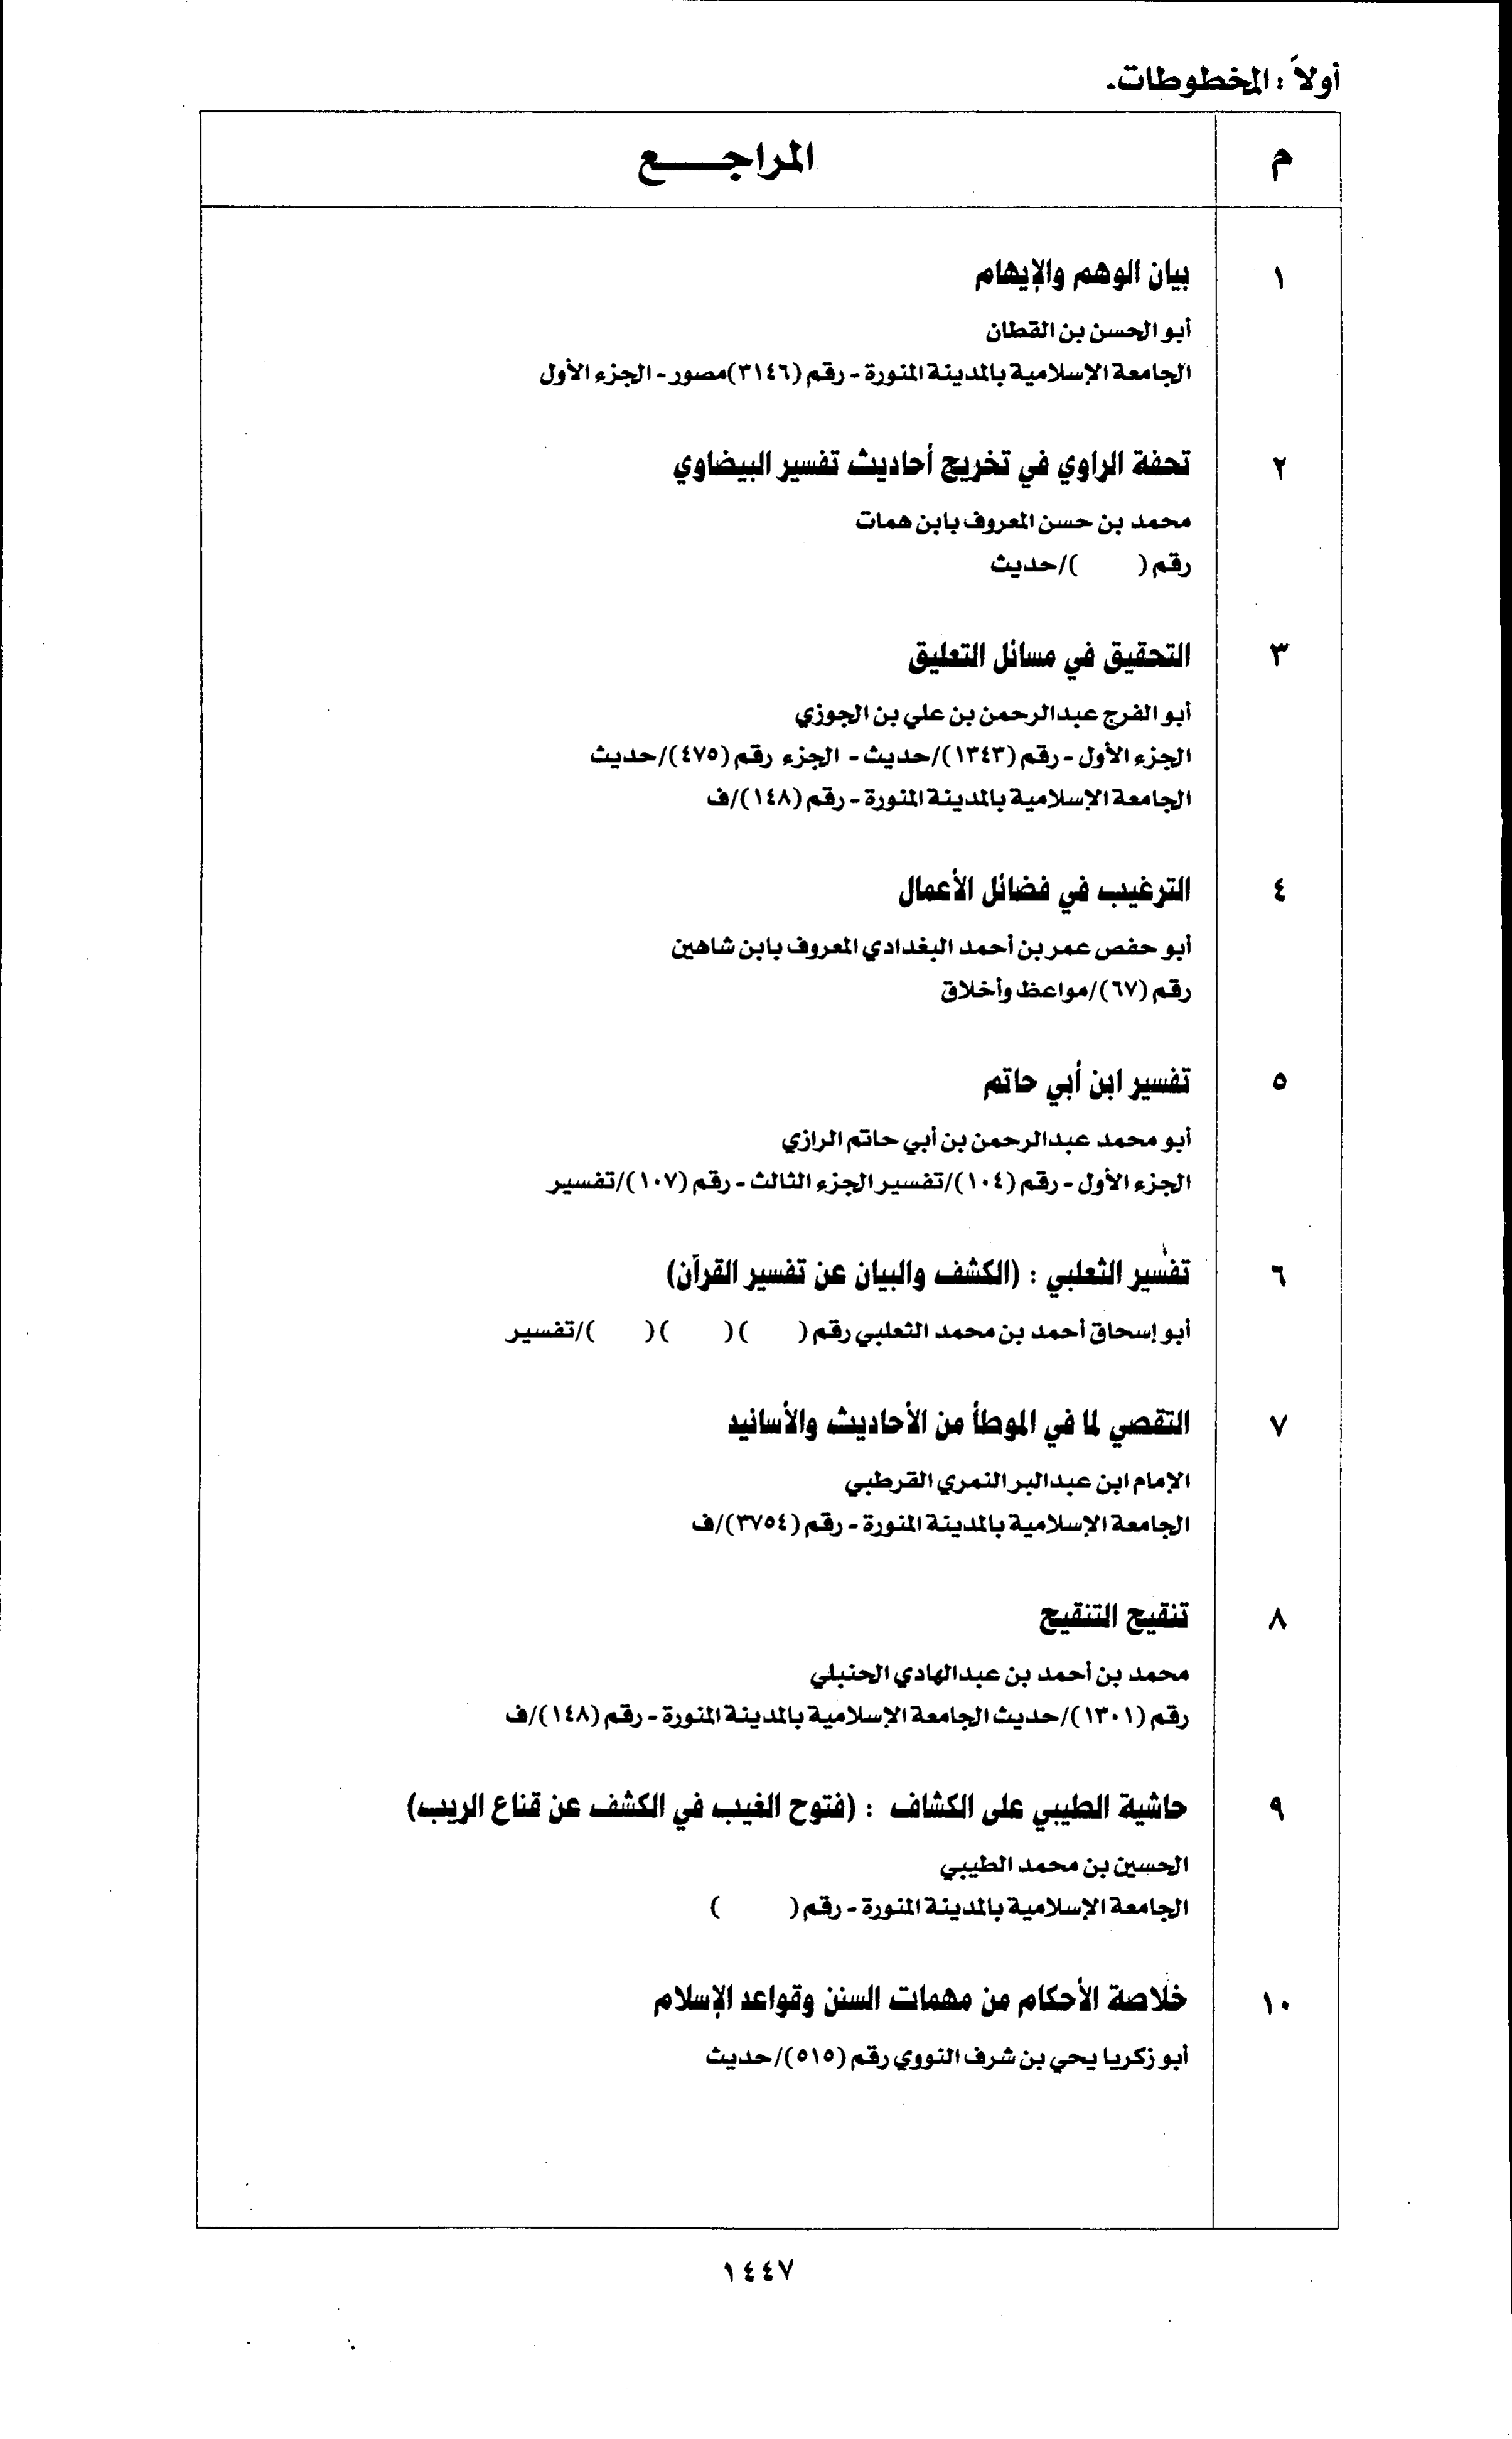 أولاً : المخطوطات.
م
المراجـــــع
١
بيان الوهم والإيهام
أبو الحسن بن القطان
الجامعة الإسلامية بالمدينة المنورة - رقم (٣١٤٦)مصور - الجزء الأول
٢
تحفة الراوي في تخريج أحاديث تفسير البيضاوي
محمد بن حسن المعروف بابن همات
رقم (      )/حديث
٣
التحقيق في مسائل التعليق
أبو الفرج عبدالرحمن بن علي بن الجوزي
الجزء الأول - رقم (١٣٤٣)/حديث - الجزء رقم (٤٧٥)/حديث
الجامعة الإسلامية بالمدينة المنورة - رقم (١٤٨)/ف
٤
الترغيب في فضائل الأعمال
أبو حفص عمر بن أحمد البغدادي المعروف بابن شاهين
رقم (٦٧)/مواعظ وأخلاق
٥
تفسير ابن أبي حاتم
أبو محمد عبدالرحمن بن أبي حاتم الرازي
الجزء الأول - رقم (١٠٤)/تفسير الجزء الثالث - رقم (١٠٧)/تفسير
٦
تفسير الثعلبي : (الكشف والبيان عن تفسير القرآن)
أبو إسحاق أحمد بن محمد الثعلبي رقم (      )(      )(      )/تفسير
٧
التقصي لما في الموطأ من الأحاديث والأسانيد
الإمام ابن عبدالبر النمري القرطبي
الجامعة الإسلامية بالمدينة المنورة - رقم (٣٧٥٤)/ف
٨
تنقيح التنقيح
محمد بن أحمد بن عبدالهادي الحنبلي
رقم (١٣٠١)/حديث الجامعة الإسلامية بالمدينة المنورة - رقم (١٤٨)/ف
٩
حاشية الطيبي على الكشاف : (فتوح الغيب في الكشف عن قناع الريب)
الحسين بن محمد الطيبي
الجامعة الإسلامية بالمدينة المنورة - رقم (      )
١٠
خلاصة الأحكام من مهمات السنن وقواعد الإسلام
أبو زكريا يحي بن شرف النووي رقم (٥١٥)/حديث
١٤٤٧